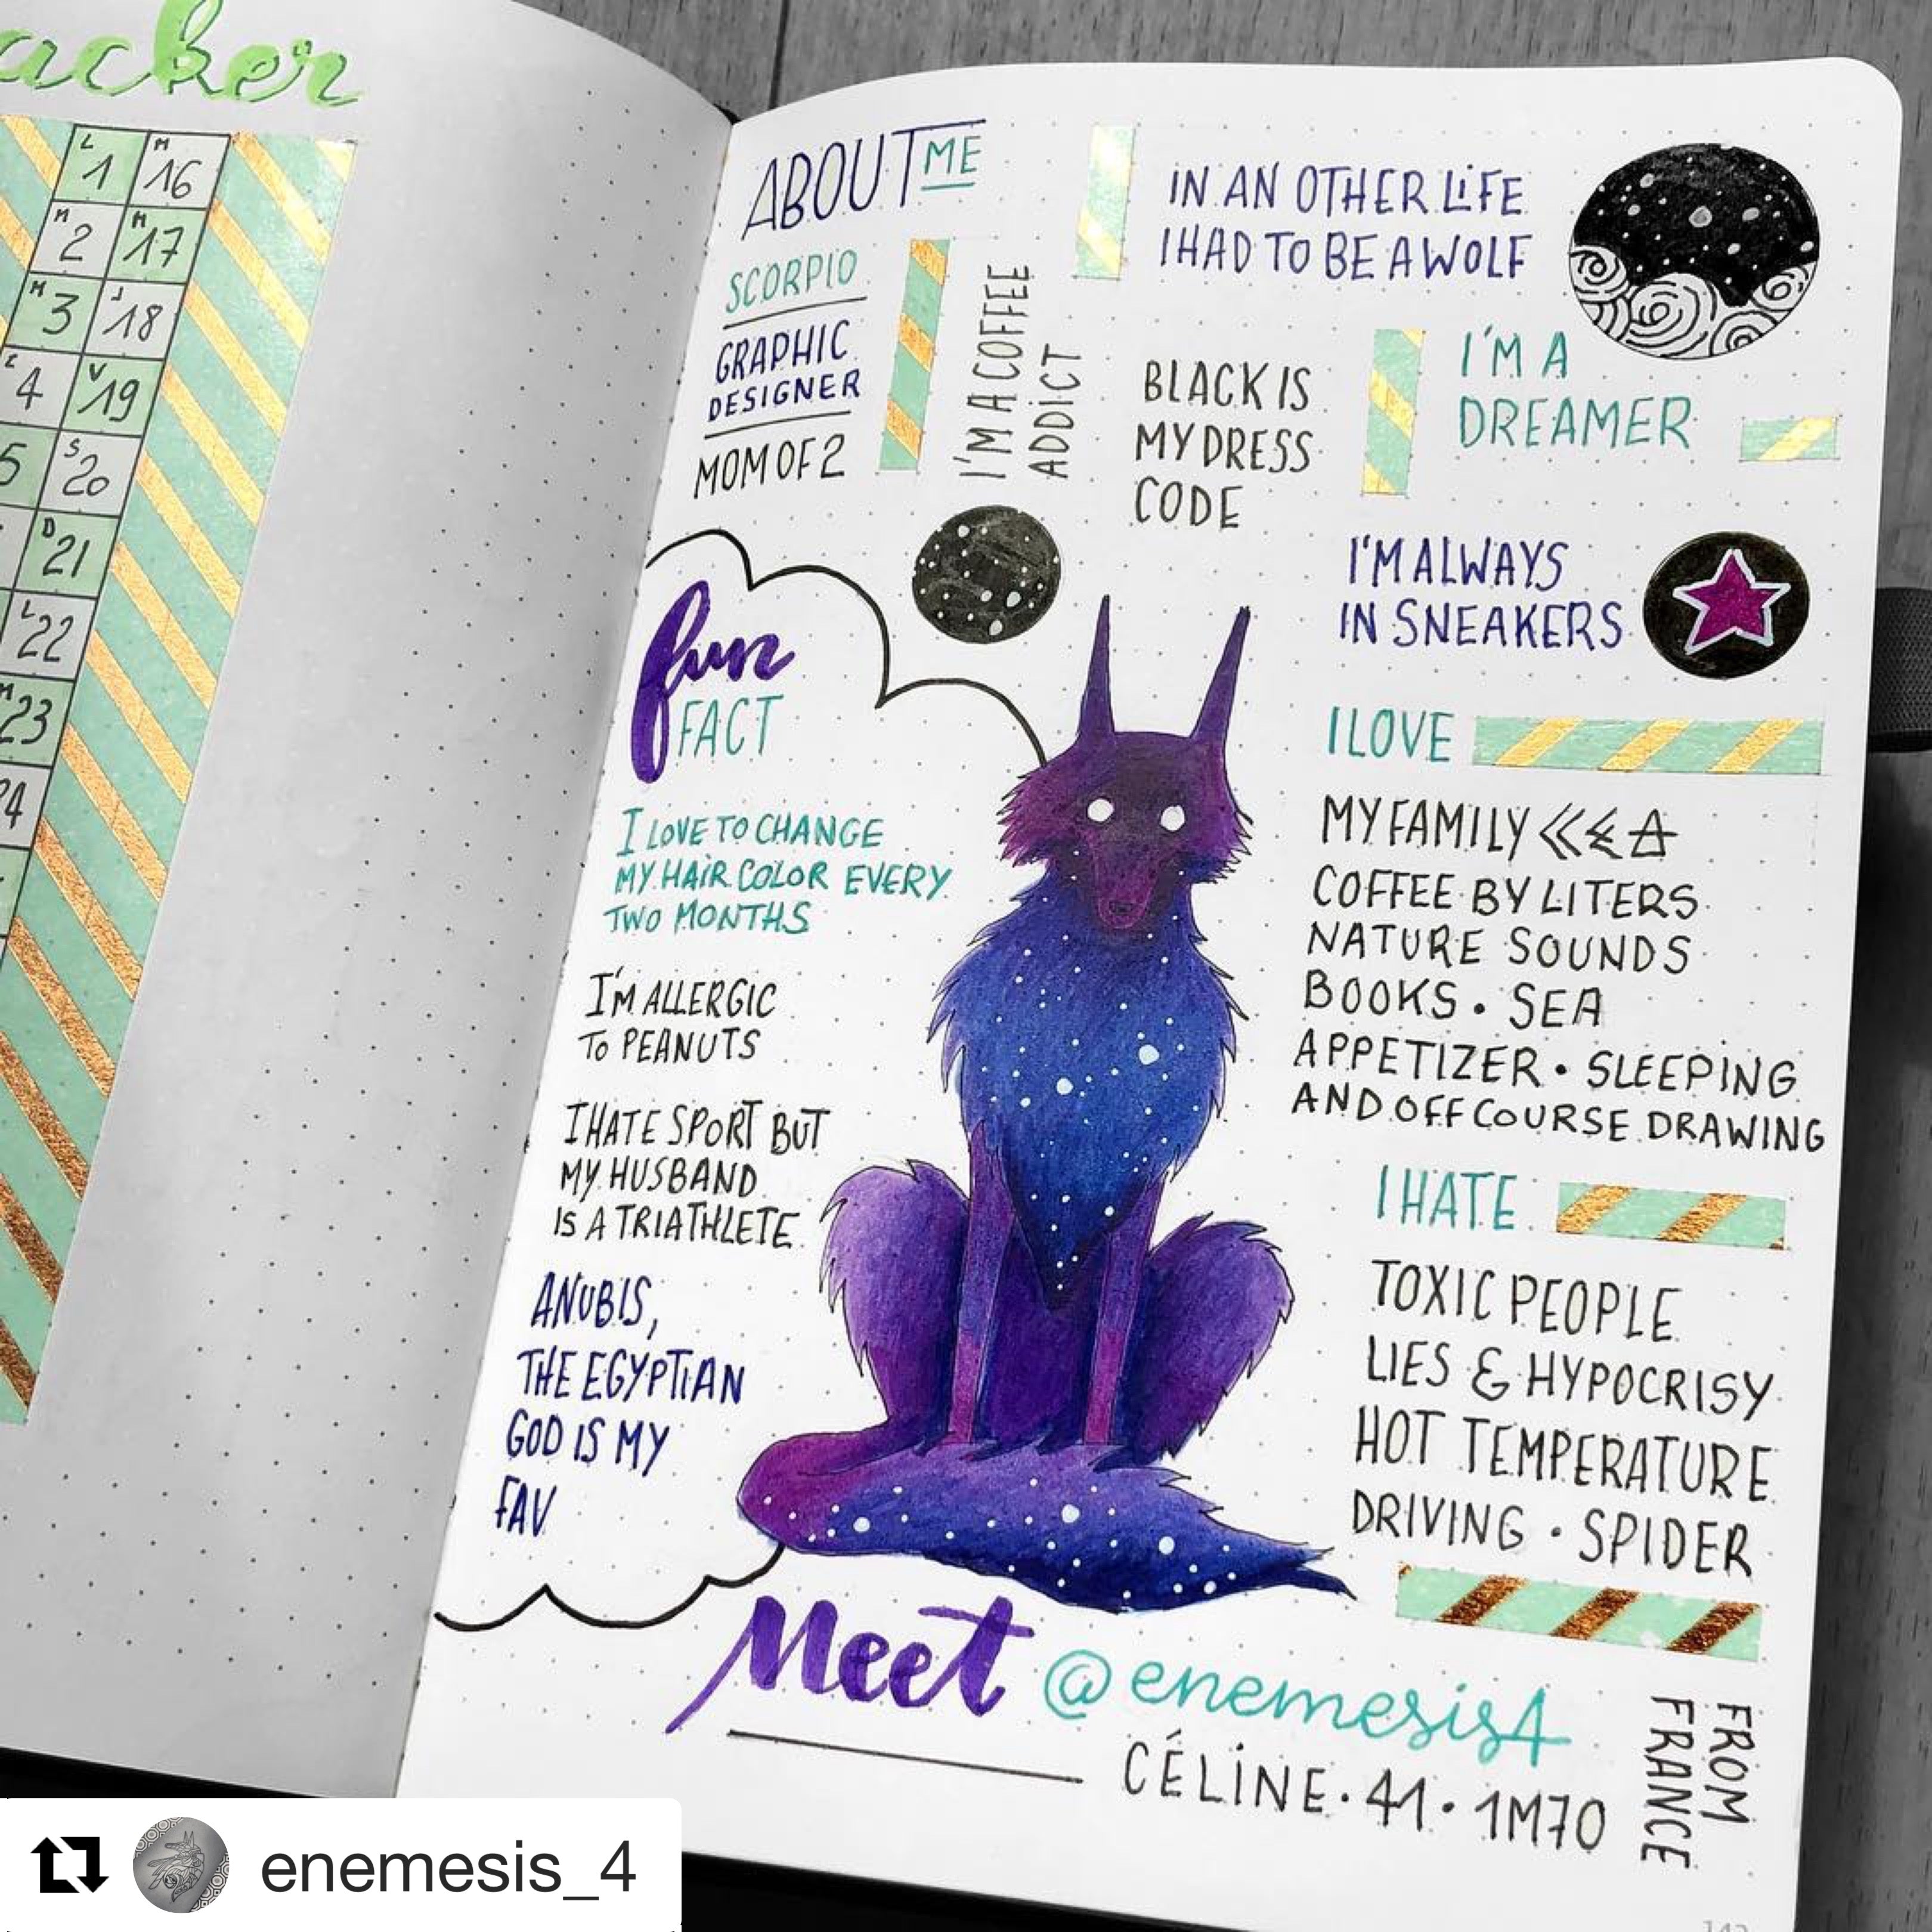 acker
L 1 M 16
M 2 M 17
M 3 J 18
4 V 19
5 S 20
D 21
L 22
M 23
24
ABOUT ME
SCORPIO
GRAPHIC
DESIGNER
MOM OF 2
I'M A COFFEE
ADDICT
IN AN OTHER LIFE
I HAD TO BE A WOLF
BLACK IS
MY DRESS
CODE
I'M A
DREAMER
I'M ALWAYS
IN SNEAKERS
fun
FACT
I LOVE TO CHANGE
MY HAIR COLOR EVERY
TWO MONTHS
I'M ALLERGIC
TO PEANUTS
I HATE SPORT BUT
MY HUSBAND
IS A TRIATHLETE
ANUBIS,
THE EGYPTIAN
GOD IS MY
FAV
I LOVE
MY FAMILY
COFFEE BY LITERS
NATURE SOUNDS
BOOKS • SEA
APPETIZER • SLEEPING
AND OFF COURSE DRAWING
I HATE
TOXIC PEOPLE
LIES & HYPOCRISY
HOT TEMPERATURE
DRIVING • SPIDER
Meet @enemesis4
CÉLINE • 41 • 1M70
FROM
FRANCE
enemesis_4